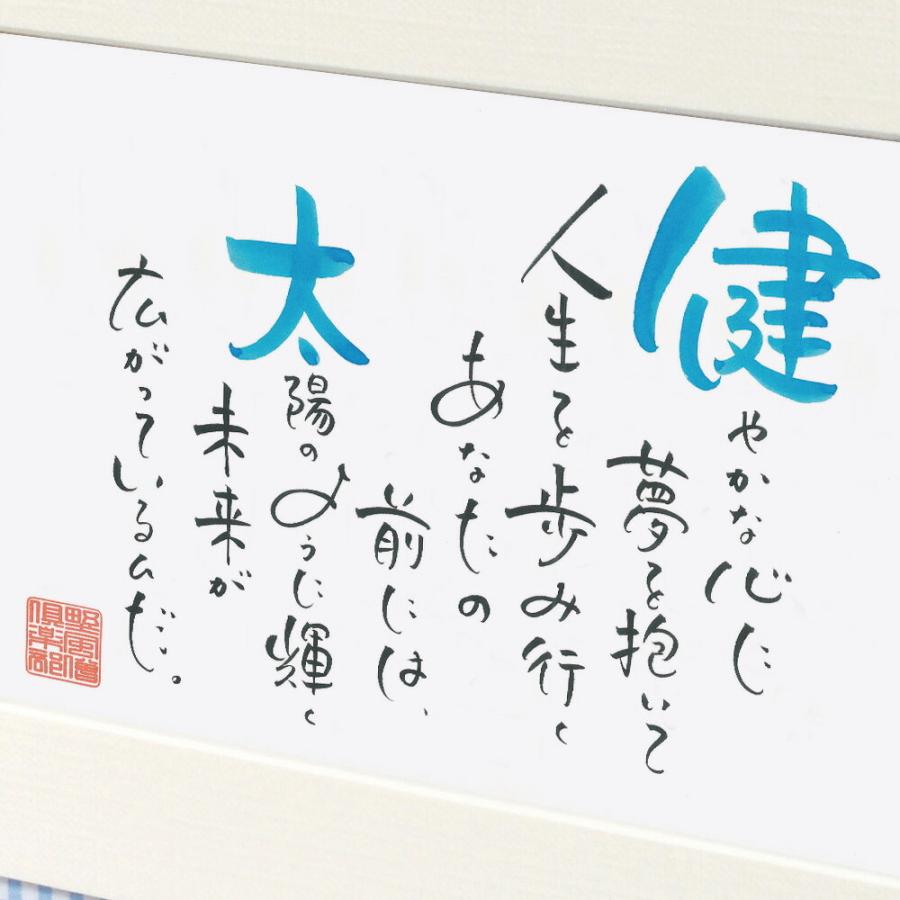 健やかな心に
夢を抱いて
人生を歩み行く
あなたの
前には、
太陽のように輝く
未来が
広がっているんだ。